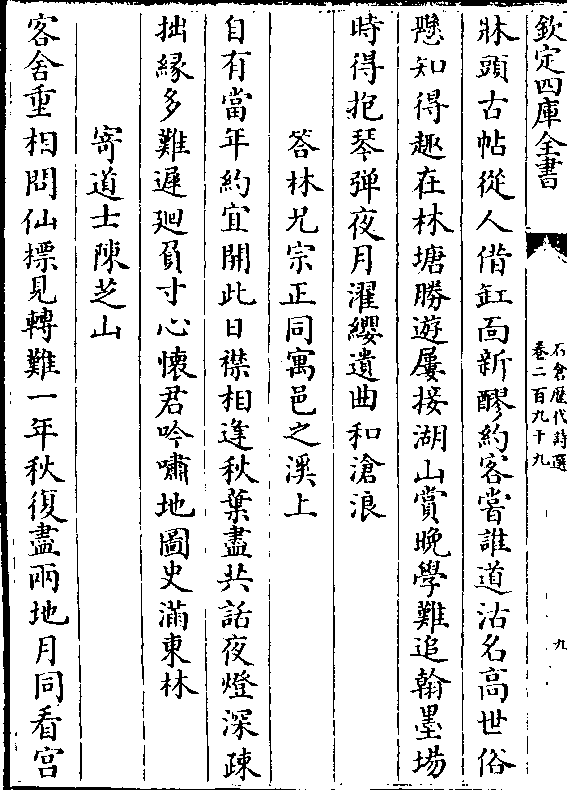 欽定四庫全書
石倉歷代詩選
卷二百九十九
九
牀頭古帖從人借缸面新醪約客嘗誰道沽名高世俗
懸知得趣在林塘勝遊屢接湖山賞晚學難追翰墨場
時得抱琴弹夜月濯纓遺曲和滄浪
答林兄宗正同寓邑之溪上
自有當年約宜開此日襟相逢秋葉盡共話夜燈深疎
拙緣多難遲廻負寸心懷君吟嘯地圖史滿東林
寄道士陳芝山
客舍重相問仙標見轉難一年秋復盡兩地月同看宫